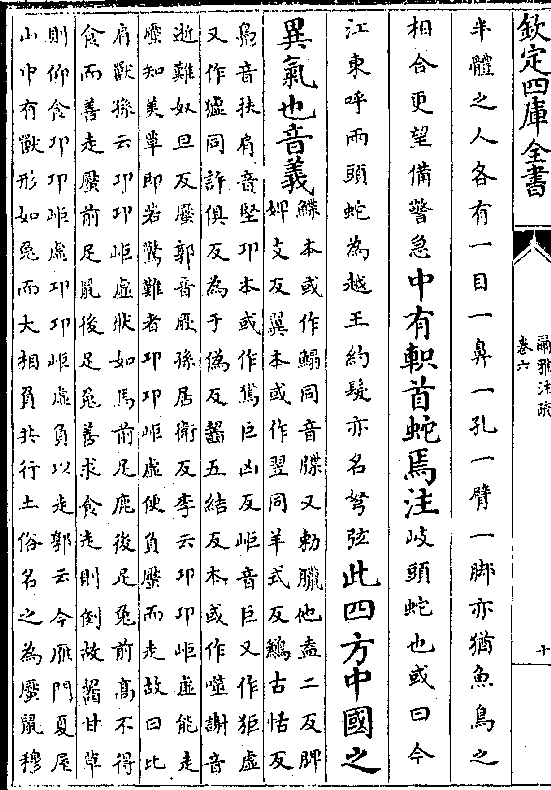 欽定四庫全書
爾雅注疏
卷六
十
半體之人各有一目一鼻一孔一臂一脚亦猶魚鳥之
相合更望備警急中有軹首蛇焉注岐頭蛇也或曰今
江東呼兩頭蛇為越王約髮亦名弩弦此四方中國之
異氣也音義
鰈本或作鰨同音牒又勅臘他盍二反脾
婢支反翼本或作翌同羊式反鶼古恬反
鳧音扶肩音堅卭本或作𨾊巨凶反岠音巨又作狟虛
又作㺉同許俱反為于偽反齧五結反本或作噬謝音
逝難奴旦反蟨郭音厥孫居衛反李云卭卭岠虛能走
蟨知美草即若驚難者卭卭岠虛便負蟨而走故曰比
肩獸孫云卭卭岠虛狀如馬前足鹿後足兔前高不得
食而善走蟨前足鼠後足兔善求食走則倒故齧甘草
則仰食卭卭岠虛卭卭岠虛負以走郭云今鴈門夏屋
山中有獸形如兔而大相負共行土俗名之為蟨鼠穆